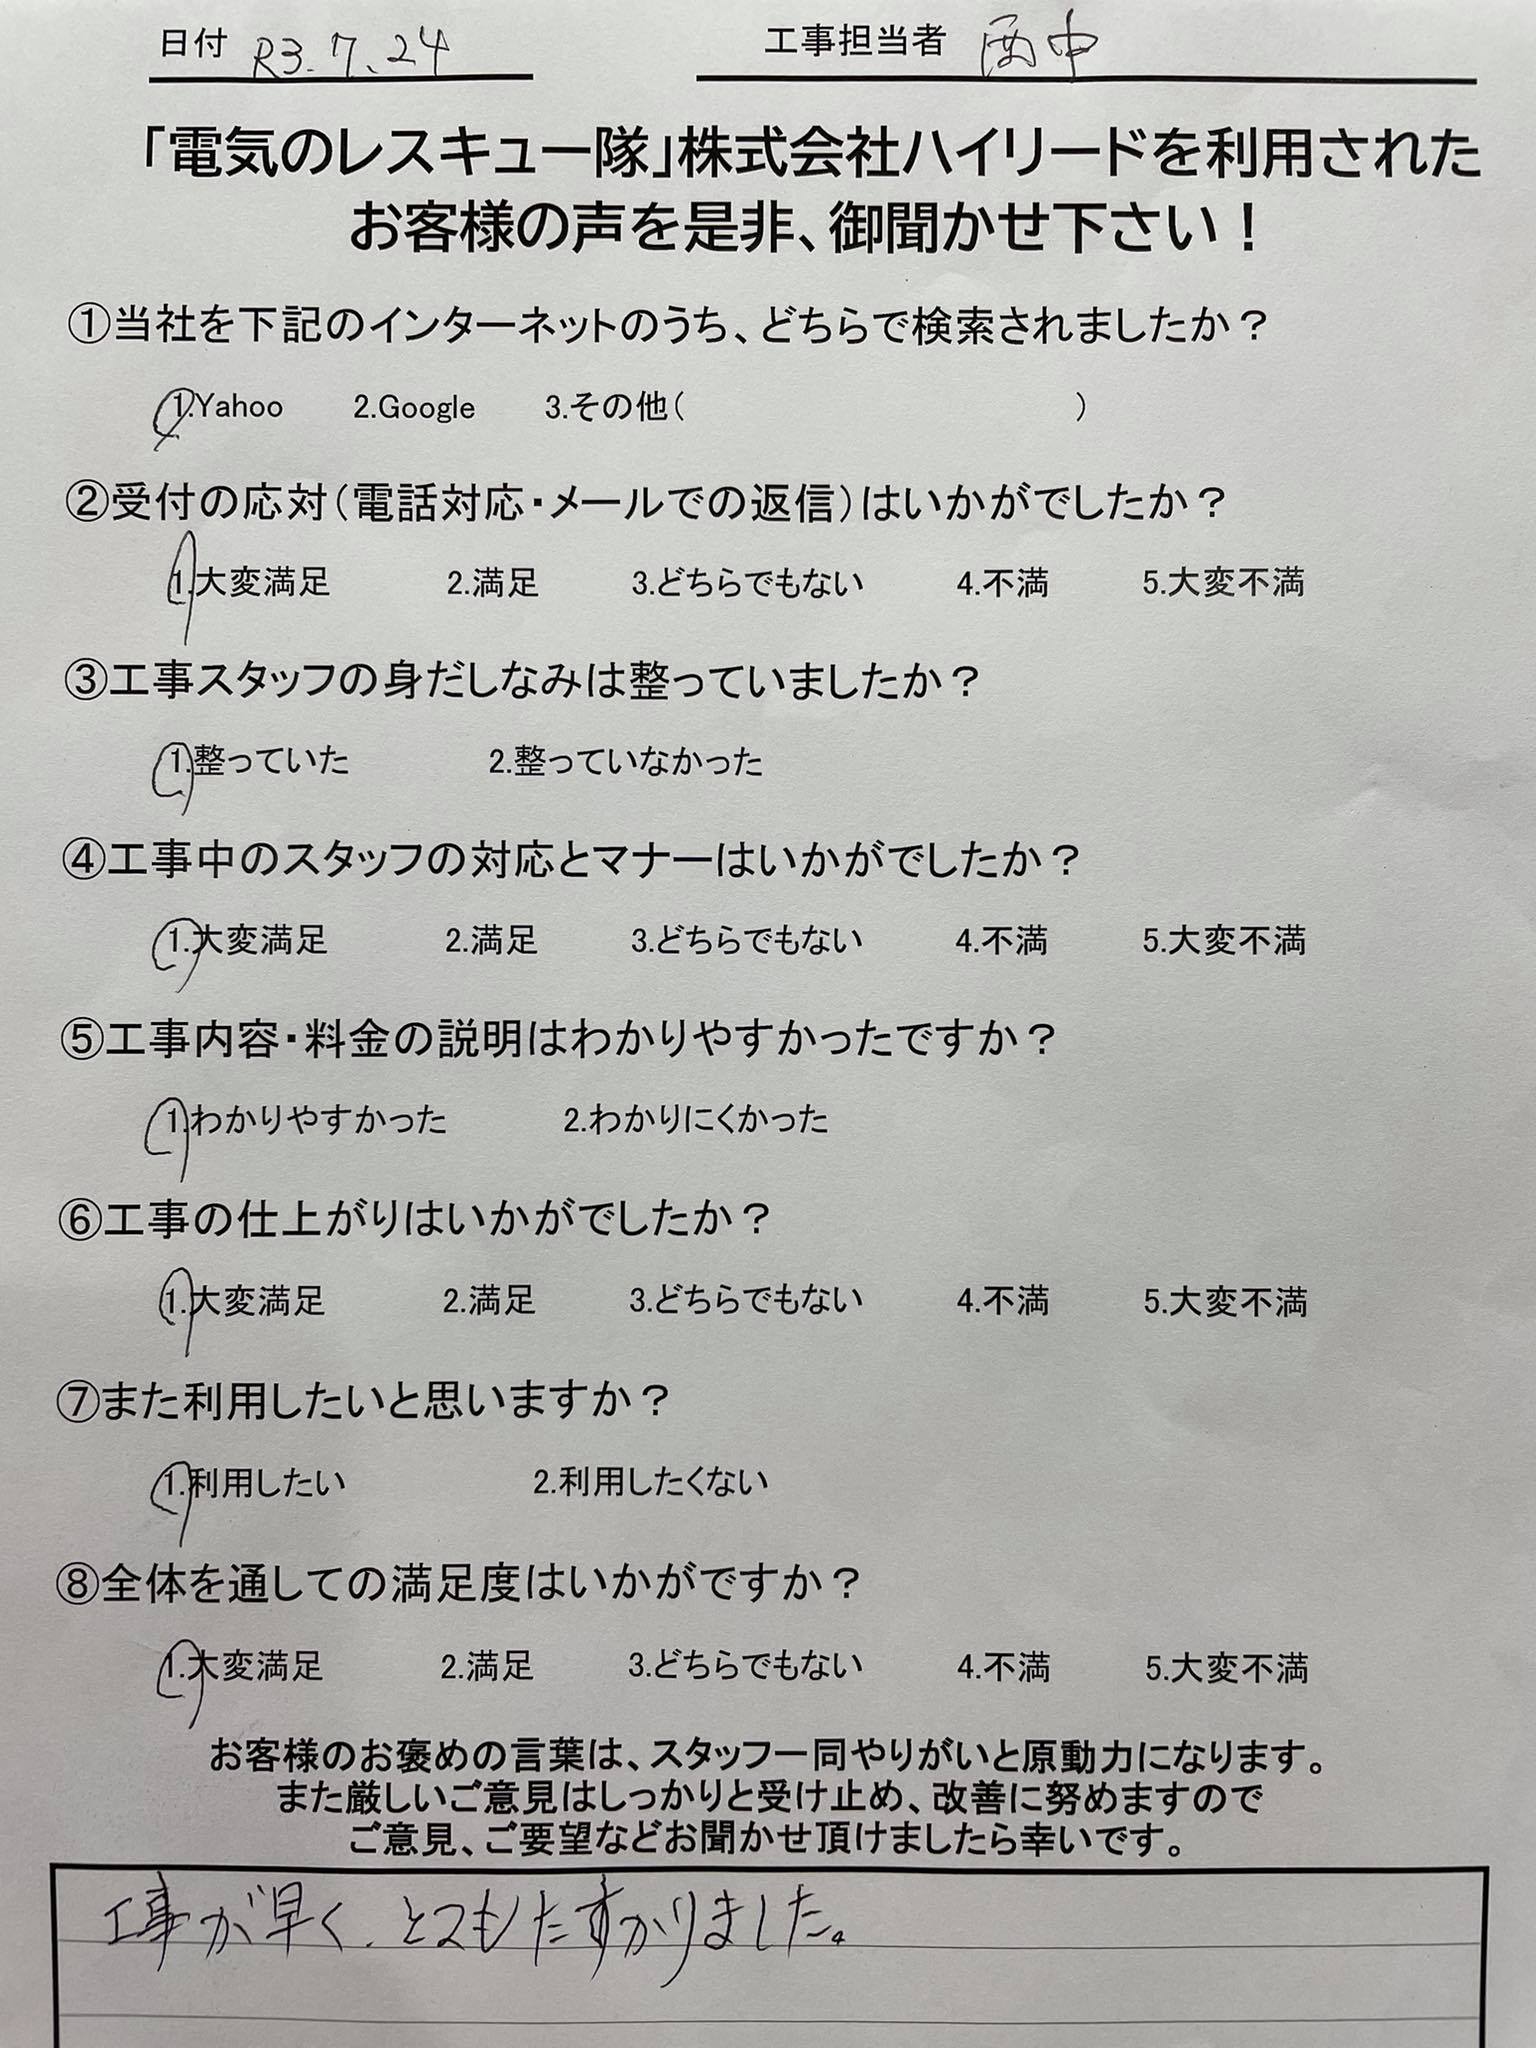 日付 R3.7.24 工事担当者 西中
「電気のレスキュー隊」株式会社ハイリードを利用された
お客様の声を是非、御聞かせ下さい！
①当社を下記のインターネットのうち、どちらで検索されましたか？
1.Yahoo 2.Google 3.その他( )
②受付の応対(電話対応・メールでの返信)はいかがでしたか？
1.大変満足 2.満足 3.どちらでもない 4.不満 5.大変不満
③工事スタッフの身だしなみは整っていましたか？
1.整っていた 2.整っていなかった
④工事中のスタッフの対応とマナーはいかがでしたか？
1.大変満足 2.満足 3.どちらでもない 4.不満 5.大変不満
⑤工事内容・料金の説明はわかりやすかったですか？
1.わかりやすかった 2.わかりにくかった
⑥工事の仕上がりはいかがでしたか？
1.大変満足 2.満足 3.どちらでもない 4.不満 5.大変不満
⑦また利用したいと思いますか？
1.利用したい 2.利用したくない
⑧全体を通しての満足度はいかがですか？
1.大変満足 2.満足 3.どちらでもない 4.不満 5.大変不満
お客様のお褒めの言葉は、スタッフ一同やりがいと原動力になります。
また厳しいご意見はしっかりと受け止め、改善に努めますので
ご意見、ご要望などお聞かせ頂けましたら幸いです。
工事が早く、とてもたすかりました。